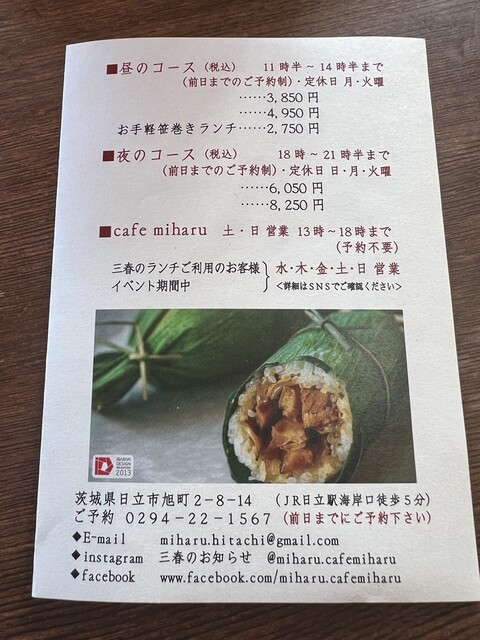 ■昼のコース（税込） 11時半～14時半まで
（前日までのご予約制）・定休日 月・火曜
……3,850円
……4,950円
お手軽笹巻きランチ……2,750円
■夜のコース（税込） 18時～21時半まで
（前日までのご予約制）・定休日 日・月・火曜
……6,050円
……8,250円
■cafe miharu 土・日 営業 13時～18時まで
（予約不要）
三春のランチご利用のお客様
イベント期間中
水・木・金・土・日 営業
＜詳細はSNSでご確認ください＞
IBARAKI
DESIGN
SELECTION
2013
茨城県日立市旭町2-8-14 （JR日立駅海岸口徒歩5分）
ご予約 0294-22-1567（前日までにご予約下さい）
◆E-mail miharu.hitachi@gmail.com
◆instagram 三春のお知らせ @miharu.cafemiharu
◆facebook www.facebook.com/miharu.cafemiharu